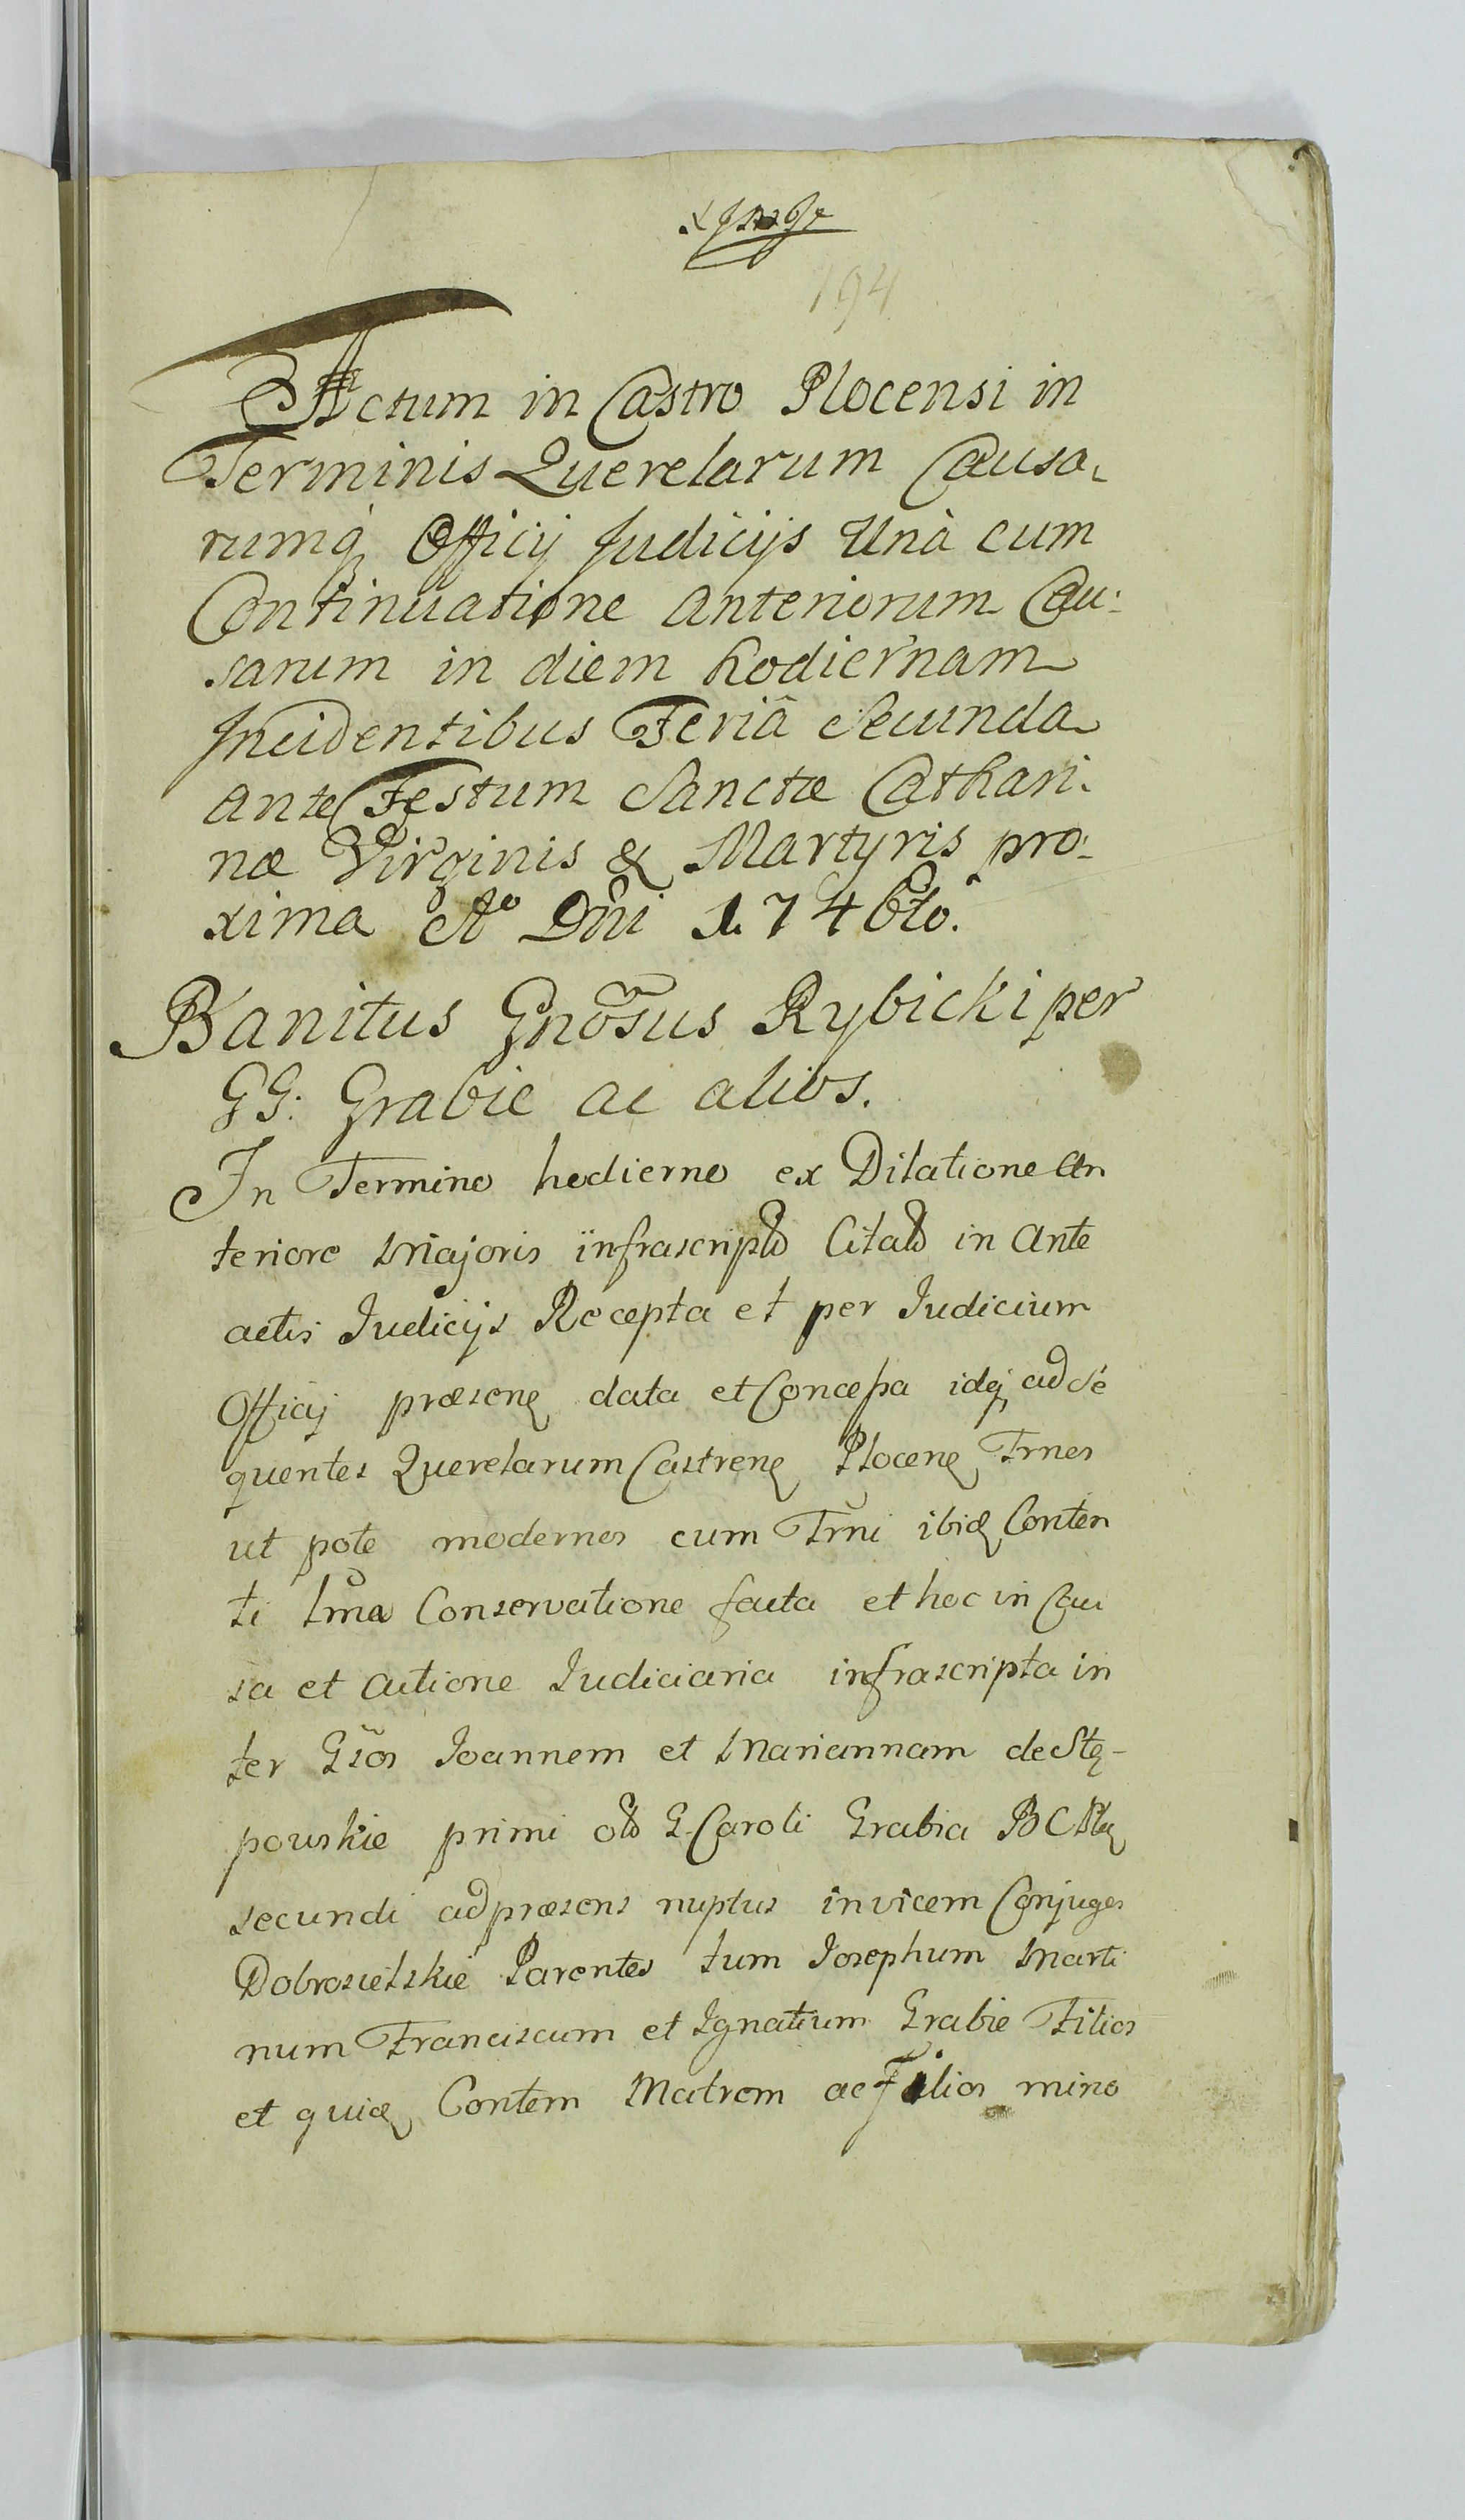 194
Actum in Castro Plocensi in
Terminis Querelarum Causa,
rumq₃ Officij Judicijs Unà cum
Continuatione Anteriorum Cau:
sarum in diem hodiernam
Incidentibus Feriâ Secunda
ante Festum Sanctæ Cathari.
næ Virginis & Martyris pro:
xima Aº Dni 1746to.
Banitus Gnõsus Rybicki per
GG: Grabie ac alios.
In Termino hodierno ex Dilatione An
teriore Majoris infrascripto Citato in Ante
actis Judicijs Recepta et per Judicium
Officij præsene data et Concessa idq₃ ad Se
quentes Querelarum Castrene Plocene Trnos
ut pote modernos cum Trni ibidē Conten
ti lma Conservatione facta et hoc in Cau
sa et Actione Judiciaria infrascripta in
ter Gsos Joannem et Mariannam de Stę-
powskie primi olo G. Caroli Grabia BCPlę
secundi ad præsens nuptus invicem Conjuges
Dobrosielskie Parentes tum Josephum Marti
num Franciscum et Ignatium Grabie Filios
et quidē Contem Matrem ac Filios mino